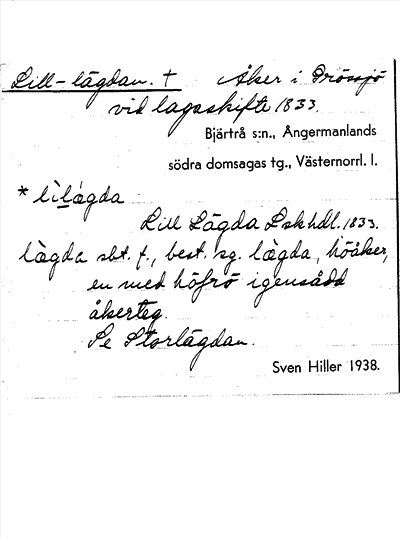 Lill-lägdan. † Åker i Grössjö
vid lagaskifte 1833.
Bjärtrå s:n., Ångermanlands
södra domsagas tg., Västernorrl. l.
* lìlägda
Lill Lägda Lskhdl. 1833.
lägda sbt. f., best. sg. lägda, höåker,
en med höfrö igensådd
åkerteg.
Se Storlägdan.
Sven Hiller 1938.